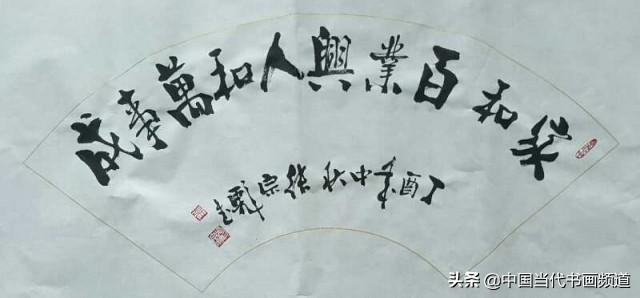 家和百業興人和萬事成
丁酉年中秋張宗
头条 @中国当代书画频道